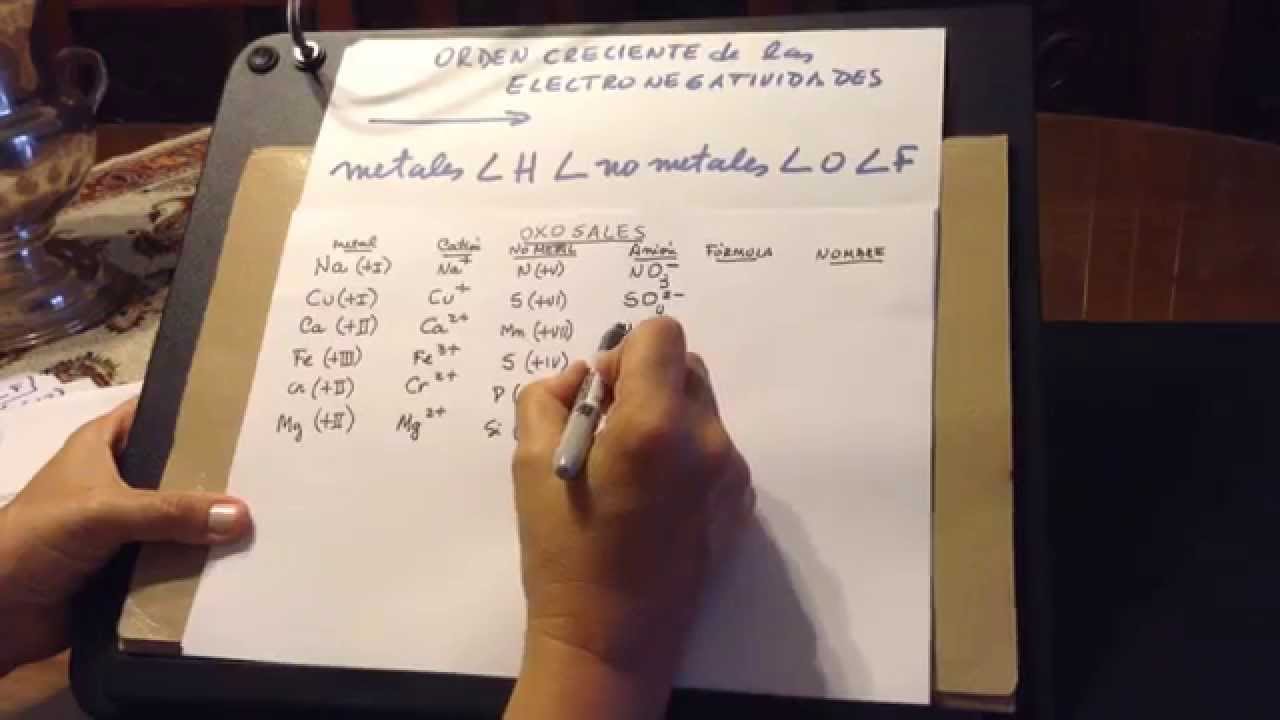 ORDEN CRECIENTE de las
ELECTRONEGATIVIDADES
metales < H < no metales < O < F
OXOSALES
metal Catión NO METAL Anión FÓRMULA NOMBRE
Na (+I) Na⁺ N (+V) NO₃⁻
Cu (+I) Cu⁺ S (+VI) SO₄²⁻
Ca (+II) Ca²⁺ Mn (+VII)
Fe (+III) Fe³⁺ S (+IV)
Cr (+II) Cr²⁺ P (
Mg (+II) Mg²⁺ Si (